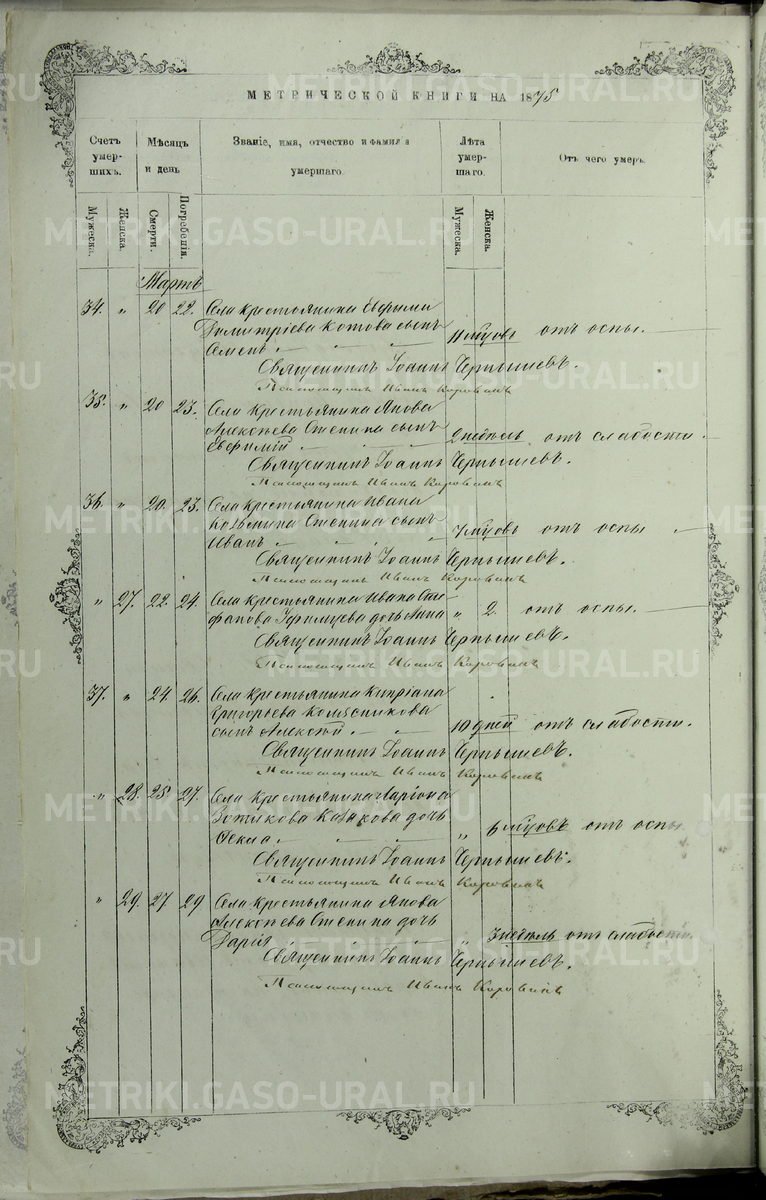 МЕТРИЧЕСКОЙ КНИГИ НА 1875
Счетъ умершихъ.
Мѣсяцъ и день
Званіе, имя, отчество и фамилія умершаго.
Лѣта умершаго.
Отъ чего умеръ.
Мужеска. Женска. Смерти. Погребенія. Мужеска. Женска.
Мартъ
34. „ 20 22. Села крестьянина Евфима
Димитріева Котова сынъ
Семенъ 11 мцовъ отъ оспы.
Священникъ Іоаннъ Чернышевъ.
Псаломщикъ Иванъ Коровинъ
35. „ 20 23. Села крестьянина Якова
Алексѣева Стенина сынъ
Евфимій 2 недѣль отъ слабости.
Священникъ Іоаннъ Чернышевъ.
Псаломщикъ Иванъ Коровинъ
36. „ 20. 23. Села крестьянина Ивана
Козьмина Стенина сынъ
Иванъ 7 мцовъ отъ оспы
Священникъ Іоаннъ Чернышевъ.
Псаломщикъ Иванъ Коровинъ
„ 27. 22. 24. Села крестьянина Ивана
дочь Анна „ 2. отъ оспы.
Священникъ Іоаннъ Чернышевъ.
Псаломщикъ Иванъ Коровинъ
37. „ 24. 26. Села крестьянина Кипріана
Григорьева Колясникова
сынъ Алексѣй 10 дней отъ слабости.
Священникъ Іоаннъ Чернышевъ.
Псаломщикъ Иванъ Коровинъ
„ 28. 25 27. Села крестьянина Ларіона
Казакова дочь
Ѳекла „ 6 мцовъ отъ оспы
Священникъ Іоаннъ Чернышевъ.
Псаломщикъ Иванъ Коровинъ
„ 29. 27 29 Села крестьянина Якова
Алексѣева Стенина дочь
Дарія „ 3 недѣль отъ слабости.
Священникъ Іоаннъ Чернышевъ.
Псаломщикъ Иванъ Коровинъ
METRIKI.GASO-URAL.RU